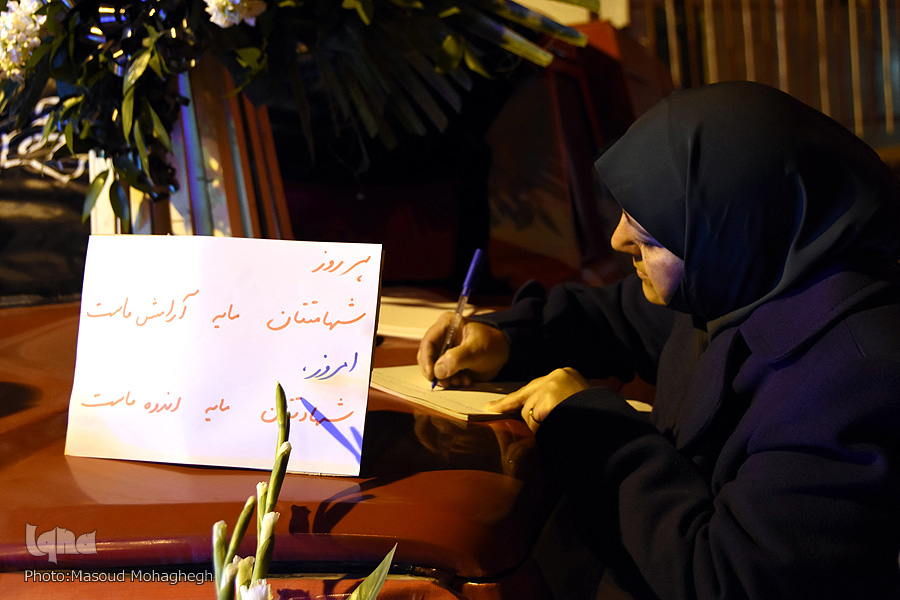 هر روز
شهامتتان مایه آرامش ماست
امروز،
شهادتتان مایه اندوه ماست
iqna
Photo:Masoud Mohaghegh